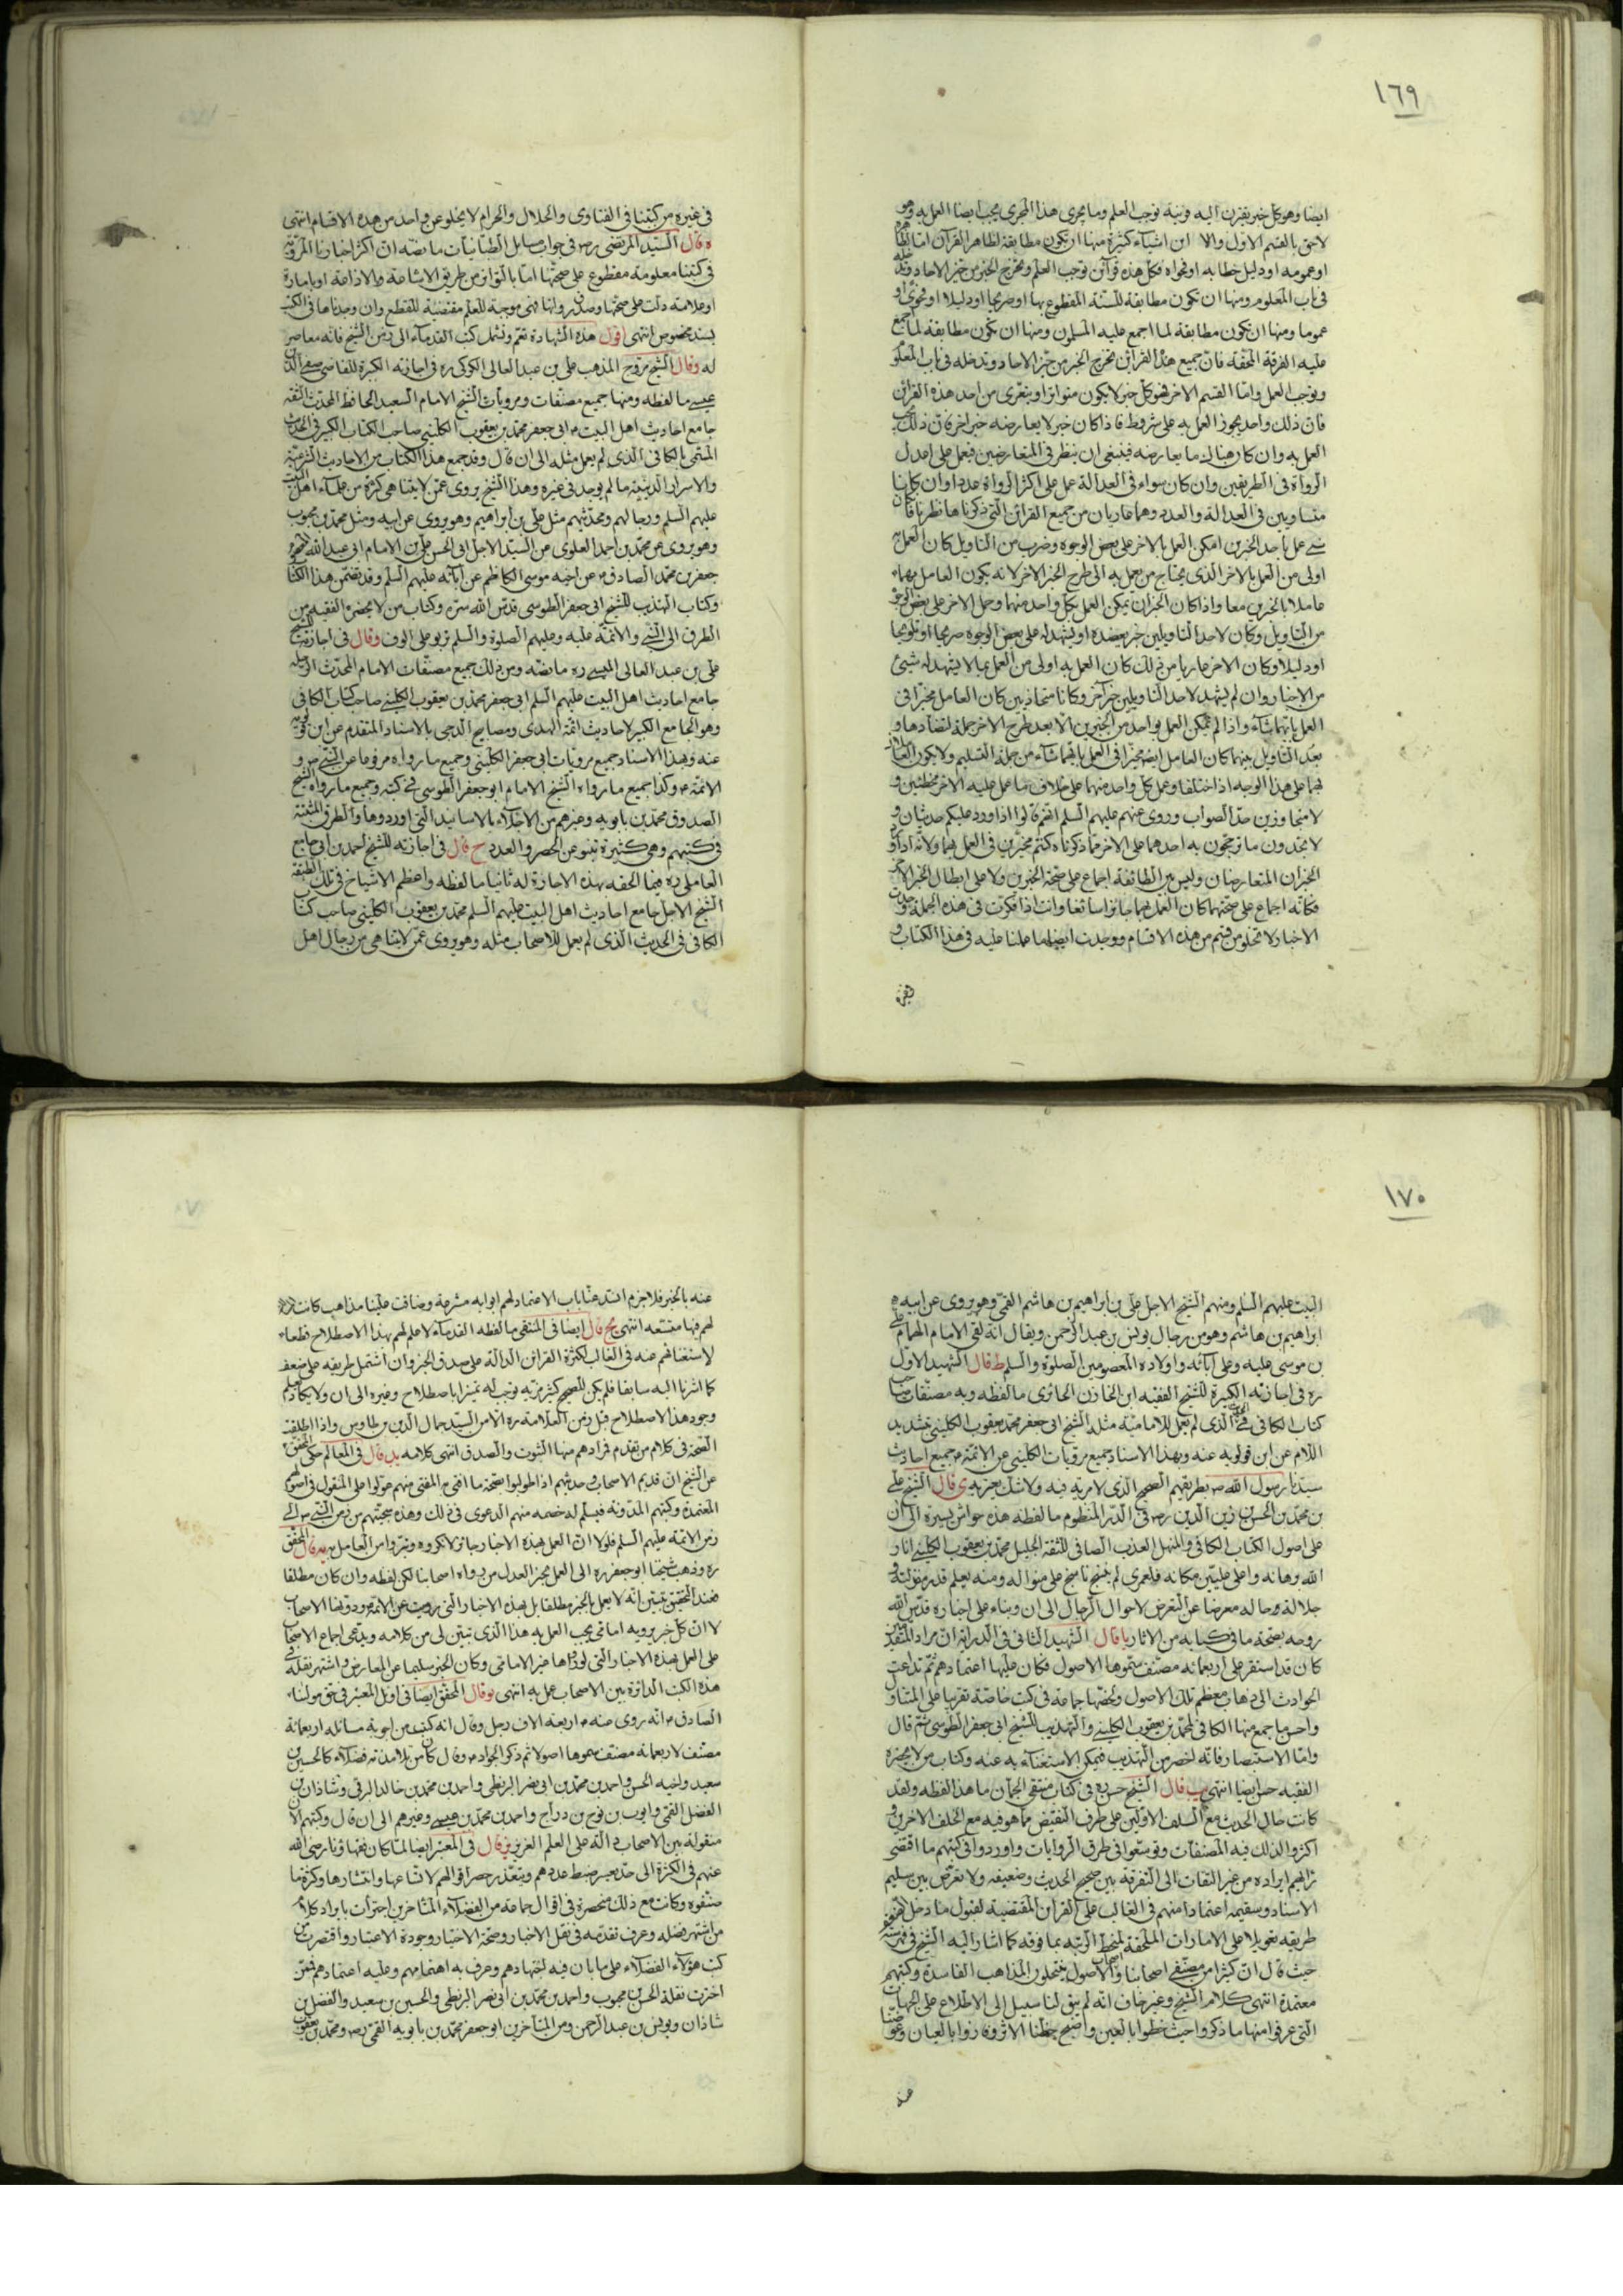 ١٦٩
ايضا وهو كل خبر يقترن اليه قرينة توجب العلم وما يجرى هذا المجرى يجب ايضا العمل به وهو
لاحق بالقسم الاول والا ان اشياء كثيرة منها ان تكون مطابقة لظاهر القرآن اما لظاهره
او عمومه او دليل خطابه او فحواه فكل هذه قرآئن توجب العلم وتخرج الخبر من حيز الاحاد وتدخله
فى باب المعلوم ومنها ان تكون مطابقة للسنة المقطوع بها اوصريحا او دليلا او فحوى او
عموما ومنها ان تكون مطابقة لما اجمع عليه المسلمون ومنها ان تكون مطابقة لما اجمع
عليه الفرقة المحقة فان جميع هذه القرائن تخرج الخبر من حيز الاحاد وتدخله فى باب المعلو
وتوجب العمل واما القسم الاخر فهو كل خبر لا يكون متواترا ويتعرى من احد هذه القرائن
فان ذلك واحد يجوز العمل به على شروط فاذا كان خبر لا يعارضه خبر اخر فان ذلك يجب
العمل به وان كان هناك ما يعارضه فينبغى ان ينظر فى المتعارضين فيعمل على اعدل
الرواة فى الطريقين وان كان سواء فى العدالة عمل على اكثر الرواة عددا وان كانا
متساويين فى العدالة والعدد وهما عاريان من جميع القرائن التى ذكرناها نظرنا فان كان
متى عمل باحد الخبرين امكن العمل بالاخر على بعض الوجوه وضرب من التاويل كان العمل به
اولى من العمل بالاخر الذى يحتاج من يعمل به الى طرح الخبر الاخر لانه يكون العامل بهما
عاملا بالخبرين معا واذا كان الخبران يمكن العمل بكل واحد منهما وحمل الاخر على بعض الوجو
من التاويل وكان لاحد التاويلين خبر يعضده او يشهد له على بعض الوجوه صريحا او تلويحا
او دليلا وكان الاخر عاريا من ذلك كان العمل به اولى من العمل بما لا يشهد له شيئ
من الاخبار وان لم يشهد لاحد التاويلين خبر آخر وكانا متحاذيين كان العامل مخيرا فى
العمل بايهما شآء واذا لم يمكن العمل بواحد من الخبرين الا بعد طرح الاخر جملة لتضادهما و
بعد التاويل بينهما كان العامل ايضا مخيرا فى العمل بايهما شآء من جهة التسليم ولا يكون العاملان
بهما على هذا الوجه اذا اختلفا وعمل كل واحد منهما على خلاف ما عمل عليه الاخر مخطئين و
لا متجاوزين حد الصواب وروى عنهم عليهم السلم انهم قالوا اذا اورد عليكم حديثان و
لا تجدون ما ترجحون به احدهما على الاخر مما ذكرناه كنتم مخيرين فى العمل بهما ولانه اذا ورد
الخبران المتعارضان وليس بين الطائفة اجماع على صحة الخبرين ولا على ابطال الخبر الاخر
فكانه اجماع على صحتهما كان العمل بهما جائزا سائغا وانت اذا فكرت فى هذه الجملة وجدت
الاخبار لا تخلو من قسم من هذه الاقسام ووجدت ايضا ما عملنا عليه فى هذا الكتاب و
فى غيره من كتبنا فى الفتاوى والحلال والحرام لا يخلو عن واحد من هذه الاقسام انتهى
ه قال السيد المرتضى رض فى جواب مسايل التبانيات ما نصه ان اكثر اخبارنا المروية
فى كتبنا معلومة مقطوع على صحتها اما بالتواتر من طريق الاشاعة والاذاعة او بامارة
او علامة دلت على صحتها وصدق رواتها فهى موجبة للعلم مقتضية للقطع وان وجدناها فى الكتب
بسند مخصوص انتهى اقول هذه الشهادة تعم وتشمل كتب القدمآء الى زمن الشيخ فانه معاصر
له وقال الشيخ مروج المذهب على بن عبد العالى الكركى ره فى اجازته الكبيرة للقاضى صفى الدين
عيسى ما لفظه ومنها جميع مصنفات ومرويات الشيخ الامام السعيد الحافظ المحدث الثقة
جامع احاديث اهل البيت ع ابى جعفر محمد بن يعقوب الكلينى صاحب الكتاب الكبير فى الحديث
المسمى بالكافى الذى لم يعمل مثله الى ان قال وقد جمع هذا الكتاب من الاحاديث الشرعية
والاسرار الدينية ما لم يوجد فى غيره وهذا الشيخ يروى عمن لا يتناهى كثرة من علمآء اهل البيت
عليهم السلم ورجالهم ومحدثيهم مثل على بن ابراهيم وهو يروى عن ابيه ومثل محمد بن محبوب
وهو يروى عن محمد بن احمد العلوى عن السيد الاجل ابى الحسن على بن الامام ابى عبد الله
جعفر بن محمد الصادق ع عن اخيه موسى الكاظم عن آبائه عليهم السلم وقد تضمن هذا الكتا
وكتاب التهذيب للشيخ ابى جعفر الطوسى قدس الله سره وكتاب من لا يحضره الفقيه من
الطرق الى النبى والائمة عليه وعليهم الصلوة والسلم تربو على الوف وقال فى اجازته للشيخ
على بن عبد العالى الميسى ره ما نصه ومن ذلك جميع مصنفات الامام المحدث الرحلة
جامع احاديث اهل البيت عليهم السلم ابى جعفر محمد بن يعقوب الكلينى صاحب كتاب الكافى
وهو الجامع الكبير لاحاديث ائمة الهدى ومصابيح الدجى بالاسناد المتقدم عن ابن قولويه
عنه وبهذا الاسناد جميع مرويات ابى جعفر الكلينى وجميع ما رواه مرفوعا عن النبى ص و
الائمة ع وكذا جميع ما رواه الشيخ الامام ابو جعفر الطوسى فى كتبه وجميع ما رواه الشيخ
الصدوق محمد بن بابويه وغيرهم من الاجلاء بالاسانيد التى اوردوها والطرق المثبتة
فى كتبهم وهى كثيرة تنبو عن الحصر والعدد ح قال فى اجازته للشيخ احمد بن ابى جامع
العاملى ره فيما الحقه بهذه الاجازة له ثانيا ما لفظه واعظم الاشياخ فى تلك الطبقة
الشيخ الاجل جامع احاديث اهل البيت عليهم السلم محمد بن يعقوب الكلينى صاحب كتا
الكافى فى الحديث الذى لم يعمل للاصحاب مثله وهو يروى عمن لا يتناهى من رجال اهل
١٧٠
البيت عليهم السلم ومنهم الشيخ الاجل على بن ابراهيم بن هاشم القمى وهو يروى عن ابيه
ابراهيم بن هاشم وهو من رجال يونس بن عبد الرحمن ويقال انه لقى الامام الهمام على
بن موسى عليه وعلى آبائه واولاده المعصومين الصلوة والسلم ط قال الشهيد الاول
ره فى اجازته الكبيرة للشيخ الفقيه ابن الخازن الحائرى ما لفظه وبه مصنفات صاحب
كتاب الكافى فى الحديث الذى لم يعمل للامامية مثله الشيخ ابى جعفر محمد بن يعقوب الكلينى بتشديد
اللام عن ابن قولويه عنه وبهذا الاسناد جميع مرويات الكلينى عن الائمة ع جميع احاديث
سيدنا رسول الله ص بطريقهم الصحيح الذى لا مرية فيه ولا شك يعتريه ى قال الشيخ على
بن محمد بن الحسن بن زين الدين رض فى الدر المنظوم ما لفظه هذه حواش يسيرة الى ان
على اصول الكتاب الكافى والمنهل العذب الصافى للثقة الجليل محمد بن يعقوب الكلينى انار
الله برهانه واعلى فى عليين مكانه فلعمرى لم ينسج ناسج على منواله ومنه يعلم قدر منزلته و
جلالة حاله معرضا عن التعرض لاحوال الرجال الى ان وبناء على اخباره قدس الله
روحه بصحة ما فى كتابه من الاثار يا قال الشهيد الثانى فى الدراية ان مراد المتقدمين
كان قد استقر على اربعمائة مصنف سموها الاصول فكان عليها اعتمادهم ثم تداعت
الحوادث الى ذهاب معظم تلك الاصول ولخصها جماعة فى كتب خاصة تقريبا على المتناو
واحسن ما جمع منها الكافى لمحمد بن يعقوب الكلينى والتهذيب للشيخ ابى جعفر الطوسى ثم قال
واما الاستبصار فانه اخصر من التهذيب فيمكن الاستغناء به عنه وكتاب من لا يحضره
الفقيه حسن ايضا انتهى يب قال الشيخ حسن ره فى كتاب منتقى الجمان ما هذا لفظه ولقد
كانت حال الحديث مع السلف الاولين على طرف النقيض مما هو فيه مع الخلف الاخرين و
اكثروا لذلك فيه المصنفات وتوسعوا فى طرق الروايات واوردوا فى كتبهم ما اقتضى
رأيهم ايراده من غير التفات الى التفرقة بين صحيح الحديث وضعيفه ولا تعرض بين سليم
الاسناد وسقيمه اعتمادا منهم فى الغالب على القرائن المقتضية لقبول ما دخل الضعف
طريقه وتعويلا على الامارات الملحقة لمنحط الرتبة بما فوقه كما اشار اليه الشيخ فى فهرسته
حيث قال ان كثيرا من مصنفى اصحابنا واصحاب الاصول ينتحلون المذاهب الفاسدة وكتبهم
معتمدة انتهى كلام الشيخ وغير خاف انه لم يبق لنا سبيل الى الاطلاع على الجهات
التى عرفوا منها ما ذكروا حيث حظوا بالعين واصبح حظنا الاثر وفازوا بالعيان وعوضنا
عنه بالخبر فلا جرم انسد عنا باب الاعتماد لهم ابوابه مشرعة وضاقت علينا مذاهب كانت
لهم فيها متسعة انتهى يج قال ايضا فى المنتقى ما لفظه القدمآء لا علم لهم بهذا الاصطلاح قطعا
لاستغنائهم عنه فى الغالب لكثرة القرائن الدالة على صدق الخبر وان اشتمل طريقه على ضعف
كما اشرنا اليه سابقا فلم يكن للصحيح كثير مزية توجب له تميزا باصطلاح وغيره الى ان ولا يكاد يعلم
وجود هذا الاصطلاح قبل زمن العلامة ره الا من السيد جمال الدين بن طاوس واذا اطلقت
الصحة فى كلام من تقدم فمرادهم منها الثبوت والصدق انتهى كلامه يد قال فى المعالم حكى المحقق
عن الشيخ ان قديم الاصحاب وحديثهم اذا طولبوا بصحة ما افتى به المفتى منهم عولوا على المنقول فى اصولهم
المعتمدة وكتبهم المدونة فيسلم له خصمه منهم الدعوى فى ذلك وهذه سجيتهم من زمن النبى ص الى
زمن الائمة عليهم السلم فلولا ان العمل بهذه الاخبار جائز لانكروه وتبرؤا من العامل به يه قال المحقق
ره وذهب شيخنا ابو جعفر ره الى العمل بخبر العدل من رواة اصحابنا لكن لفظه وان كان مطلقا
فعند التحقيق تبين انه لا يعمل بالخبر مطلقا بل بهذه الاخبار التى رويت عن الائمة ع ودونها الاصحاب
لا ان كل خبر يرويه امامى يجب العمل به هذا الذى تبين لى من كلامه ويدعى اجماع الاصحاب
على العمل بهذه الاخبار التى لو رواها غير الامامى وكان الخبر سليما عن المعارض واشتهر نقله فى
هذه الكتب الدائرة بين الاصحاب عمل به انتهى يو قال المحقق ايضا فى اول المعتبر فى حق مولنا
الصادق ع انه روى عنه ع اربعة الاف رجل وقال انه كتب من اجوبة مسائله اربعمائة
مصنف لاربعمائة مصنف سموها اصولا ثم ذكر الجواد ع وقال كان من تلامذته فضلاء كالحسين بن
سعيد واخيه الحسن واحمد بن محمد بن ابى نصر البزنطى واحمد بن محمد بن خالد البرقى وشاذان بن
الفضل القمى وايوب بن نوح بن دراج واحمد بن محمد بن عيسى وغيرهم الى ان قال وكتبهم الان
منقولة بين الاصحاب دالة على العلم الغزير يز قال فى المعتبر ايضا لما كان فقهاؤنا رضى الله
عنهم فى الكثرة الى حد يعسر ضبط عددهم ويتعذر حصر اقوالهم لاتساعها وانتشارها وكثرة ما
صنفوه وكانت مع ذلك منحصرة فى اقوال جماعة من الفضلاء المتأخرين اجتزأت بايراد كلام
من اشتهر فضله وعرف تقدمه فى نقل الاخبار وصحة الاختيار وجودة الاعتبار واقتصرت من
كتب هؤلاء الفضلاء على ما بان فيه اجتهادهم وعرف به اهتمامهم وعليه اعتمادهم فممن
اخترت نقله الحسن بن محبوب واحمد بن محمد بن ابى نصر البزنطى والحسين بن سعيد والفضل بن
شاذان ويونس بن عبد الرحمن ومن المتأخرين ابو جعفر محمد بن بابويه القمى رض ومحمد بن يعقوب